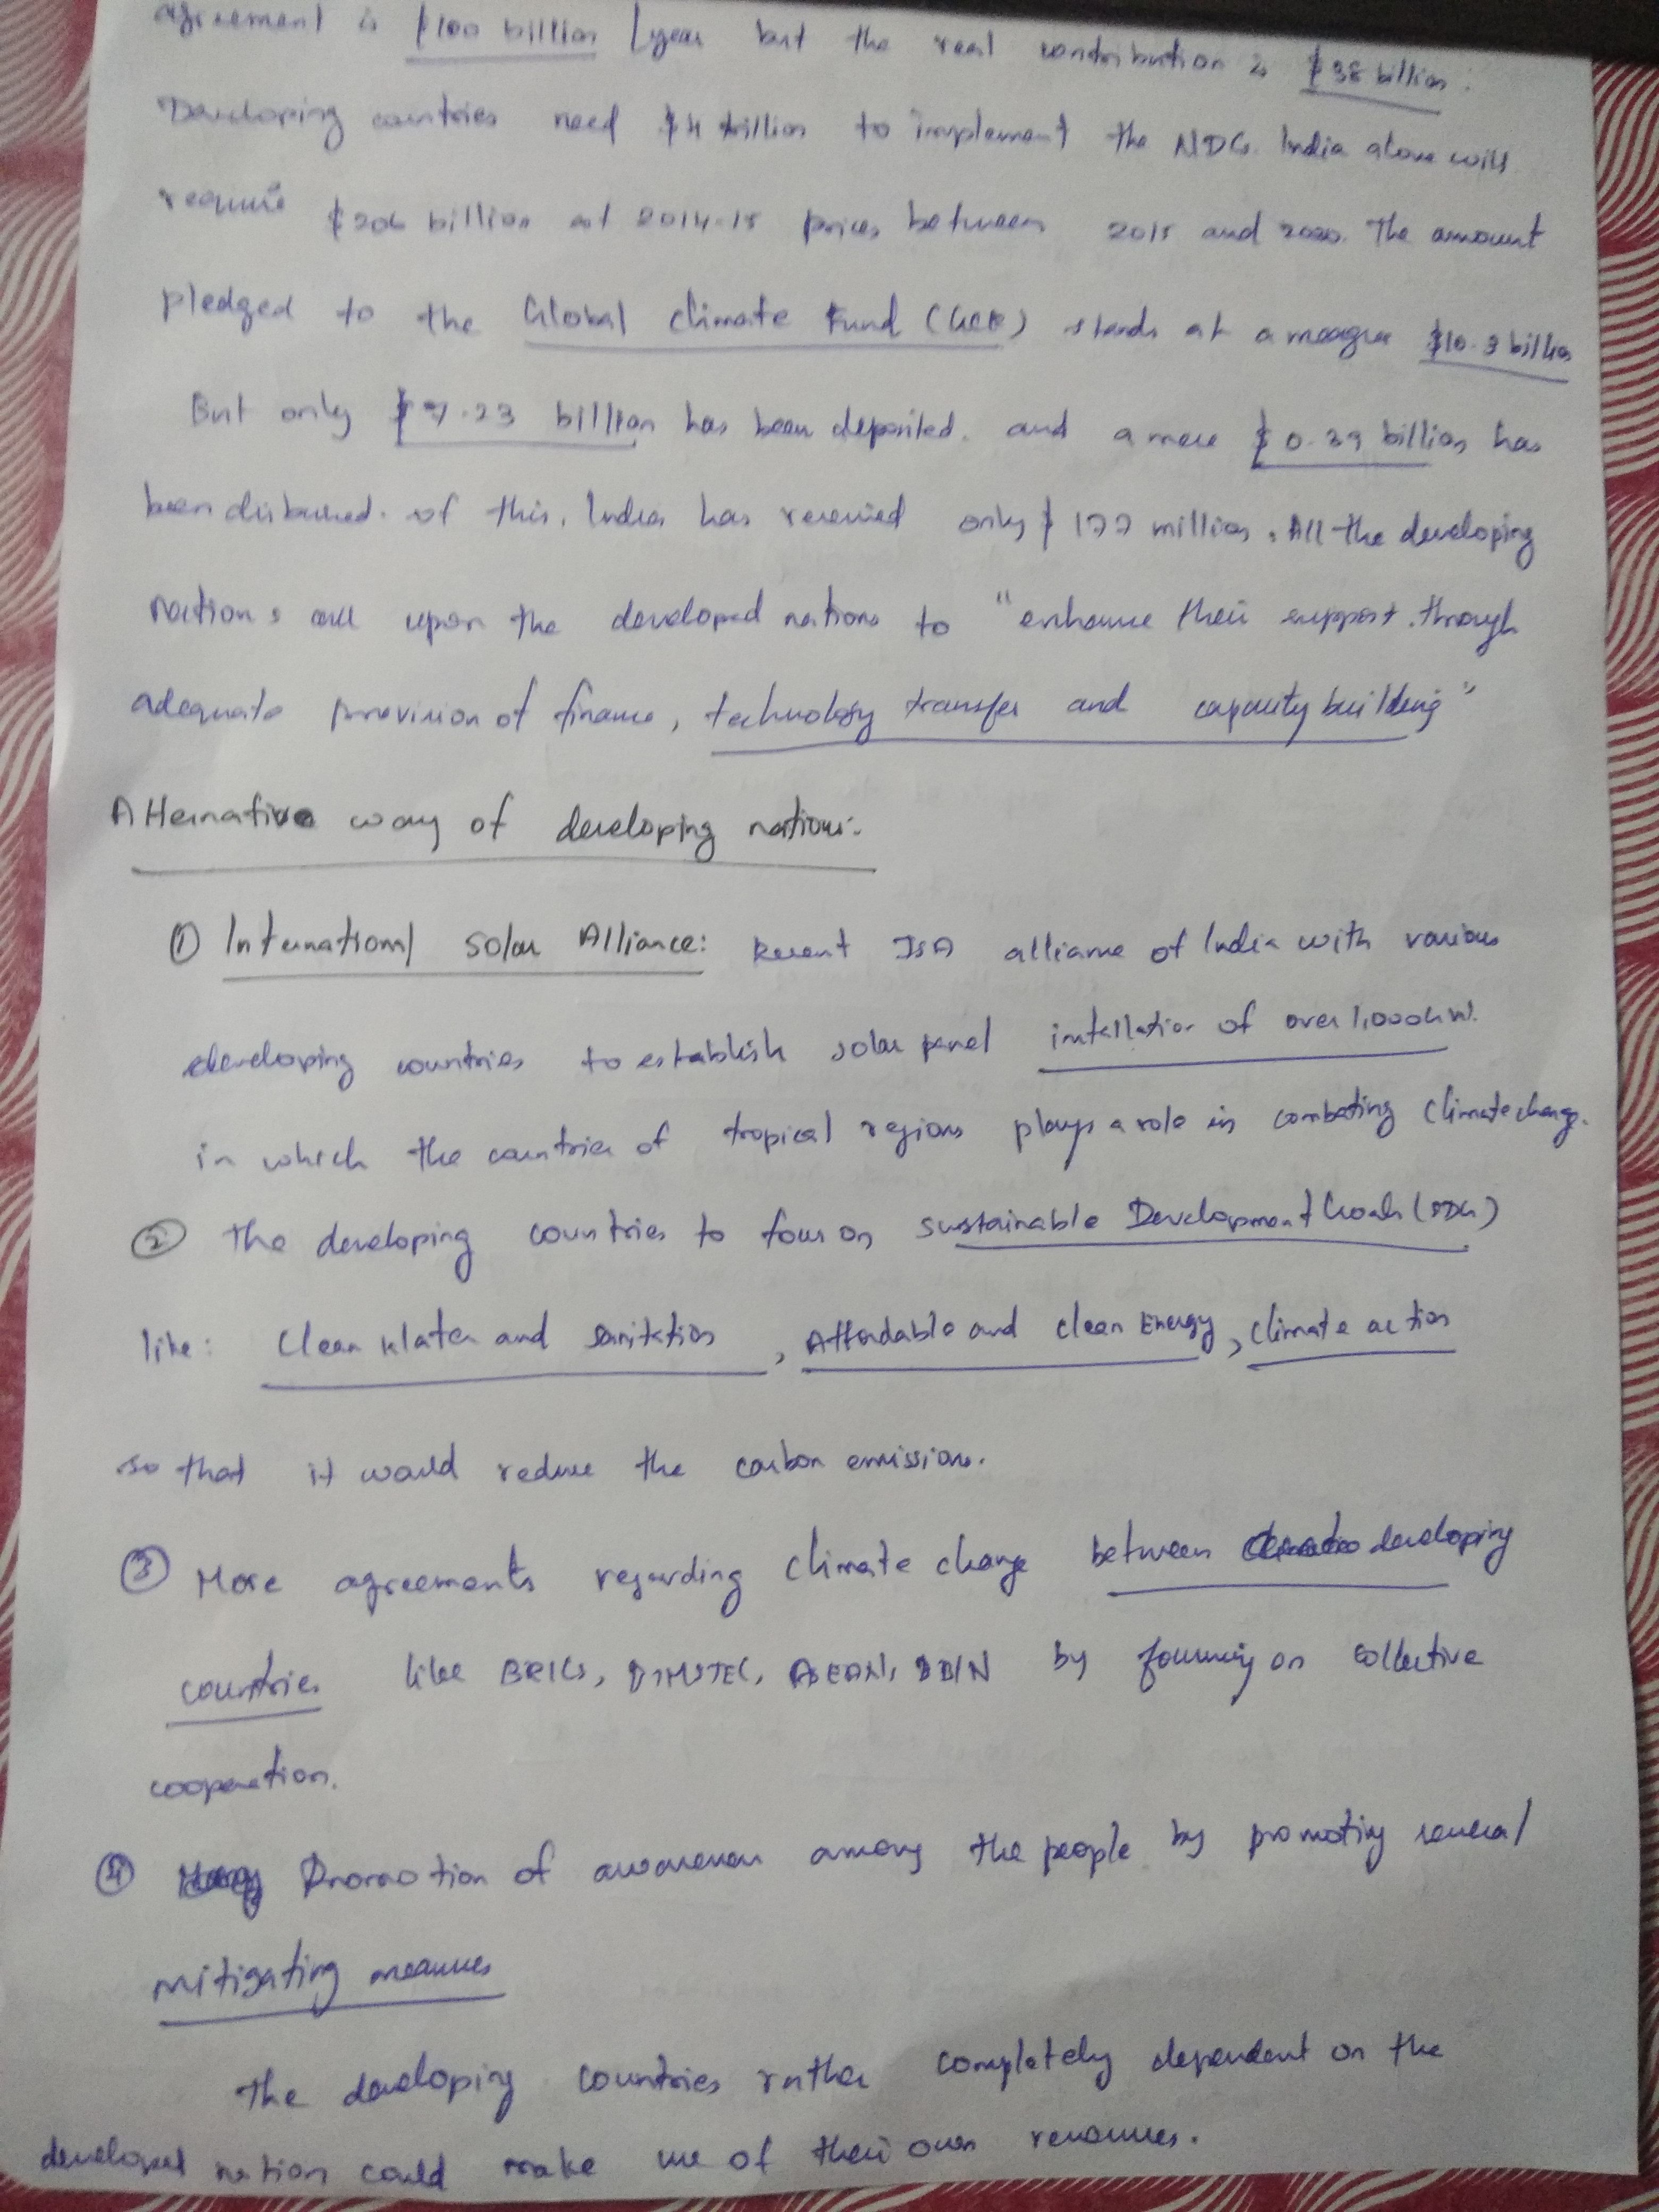 agreement is $100 billion /year but the real contribution is $38 billion.
Developing countries need $4 trillion to implement the NDCs. India alone will
require $206 billion at 2014-15 prices between 2015 and 2030. The amount
pledged to the Global Climate Fund (GCF) stands at a meagre $10.3 billion
But only $7.23 billion has been deposited. and a mere $0.39 billion has
been disbursed. of this, India has received only $177 million. All the developing
nations call upon the developed nations to "enhance their support through
adequate provision of finance, technology transfer and capacity building"
Alternative way of developing nations:-
① International Solar Alliance: Recent ISA alliance of India with various
developing countries to establish solar panel installation of over 1,000GW.
in which the countries of tropical regions plays a role in combating climate change.
② The developing countries to focus on Sustainable Development Goals (SDG)
like: Clean Water and sanitation, Affordable and clean Energy, Climate action
so that it would reduce the carbon emissions.
③ More agreements regarding climate change between developing
countries like BRICS, BIMSTEC, ASEAN, BBIN by focusing on collective
cooperation.
④ Promotion of awareness among the people by promoting several
mitigating measures
The developing countries rather completely dependent on the
developed nation could make use of their own resources.